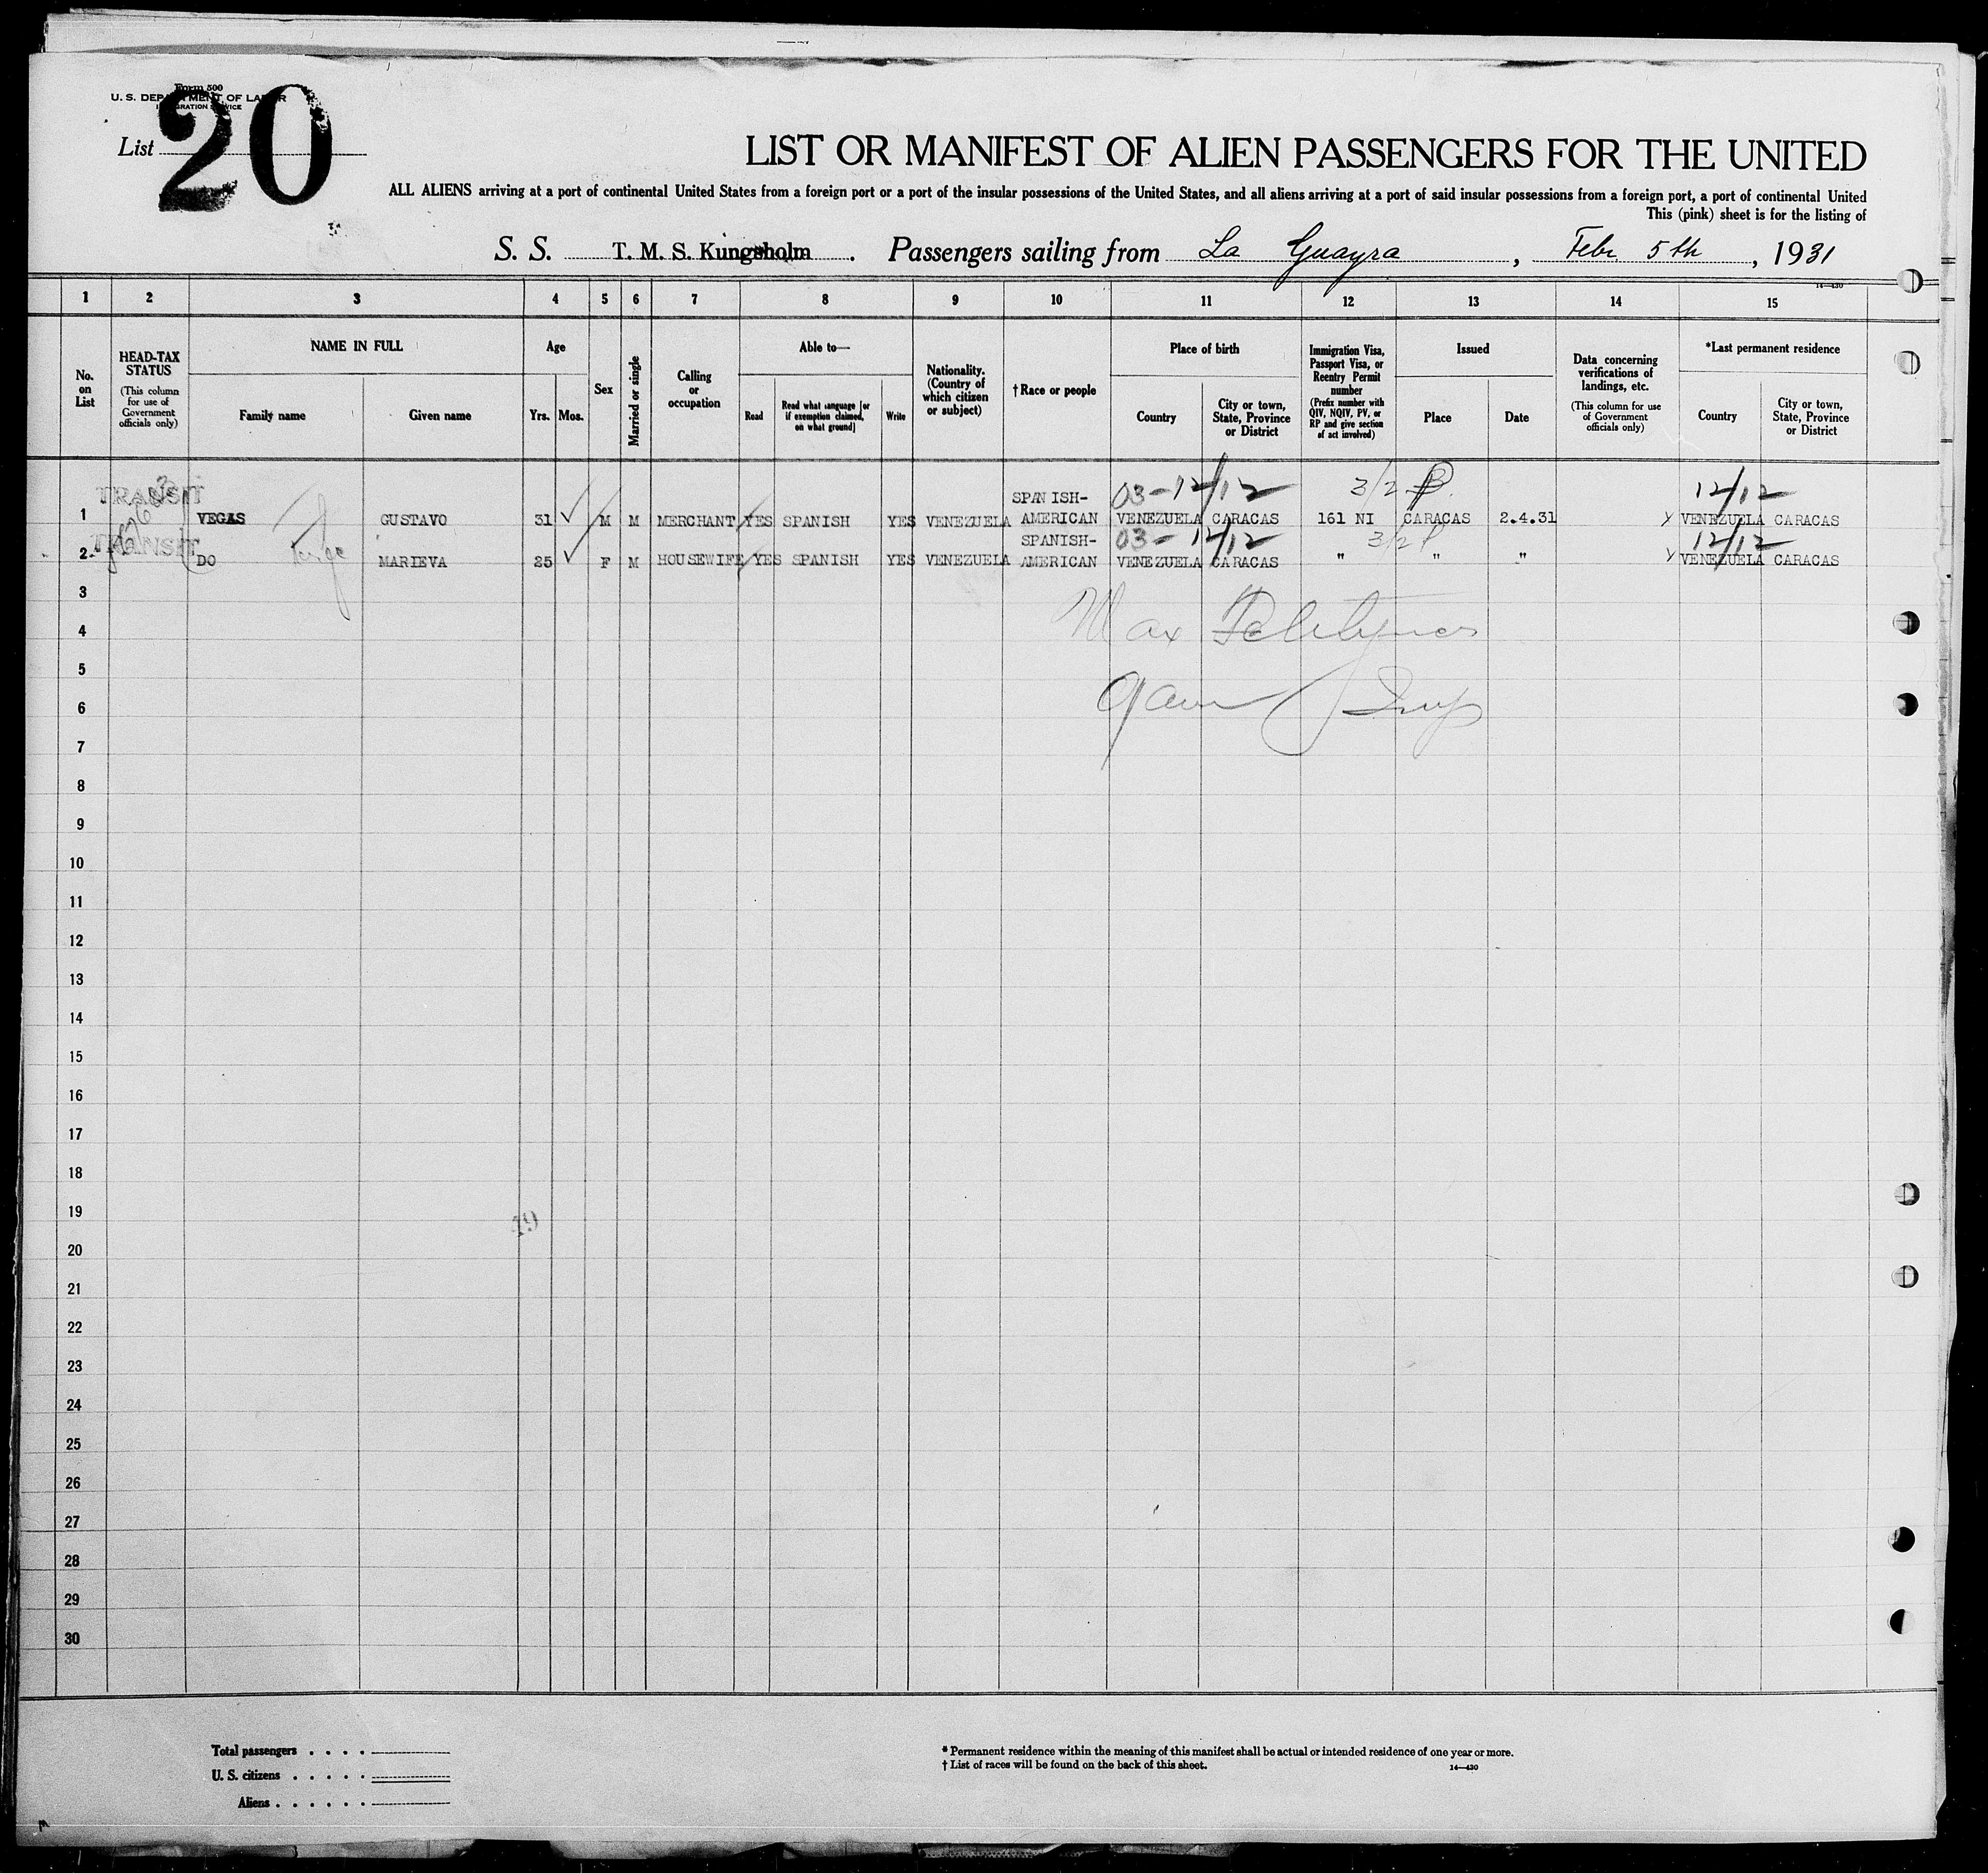 Form 500
U. S. DEPARTMENT OF LABOR
IMMIGRATION SERVICE
List 20
LIST OR MANIFEST OF ALIEN PASSENGERS FOR THE UNITED
ALL ALIENS arriving at a port of continental United States from a foreign port or a port of the insular possessions of the United States, and all aliens arriving at a port of said insular possessions from a foreign port, a port of continental United
This (pink) sheet is for the listing of
S. S. T. M. S. Kungsholm. Passengers sailing from La Guayra, Febr. 5th, 1931
14—430
1 2 3 4 5 6 7 8 9 10 11 12 13 14 15
No. on List
HEAD-TAX STATUS (This column for use of Government officials only)
NAME IN FULL
Family name Given name
Age
Yrs. Mos.
Sex
Married or single
Calling or occupation
Able to—
Read
Read what language [or if exemption claimed, on what ground]
Write
Nationality. (Country of which citizen or subject)
† Race or people
Place of birth
Country
City or town, State, Province or District
Immigration Visa, Passport Visa, or Reentry Permit number (Prefix number with QIV, NQIV, PV, or RP and give section of act involved)
Issued
Place Date
Data concerning verifications of landings, etc. (This column for use of Government officials only)
*Last permanent residence
Country
City or town, State, Province or District
TRANSIT 03-12/12 3/2 12/12
1 VEGAS GUSTAVO 31 M M MERCHANT YES SPANISH YES VENEZUELA SPANISH-AMERICAN VENEZUELA CARACAS 161 NI CARACAS 2.4.31 VENEZUELA CARACAS
TRANSIT 03-12/12 3/2 12/12
2 DO MARIEVA 25 F M HOUSEWIFE YES SPANISH YES VENEZUELA SPANISH-AMERICAN VENEZUELA CARACAS " " " VENEZUELA CARACAS
3
4 Max
5
6
7
8
9
10
11
12
13
14
15
16
17
18
19
20
21
22
23
24
25
26
27
28
29
30
19
Total passengers . . . .
U. S. citizens . . . . .
Aliens . . . . . .
* Permanent residence within the meaning of this manifest shall be actual or intended residence of one year or more.
† List of races will be found on the back of this sheet.
14—430